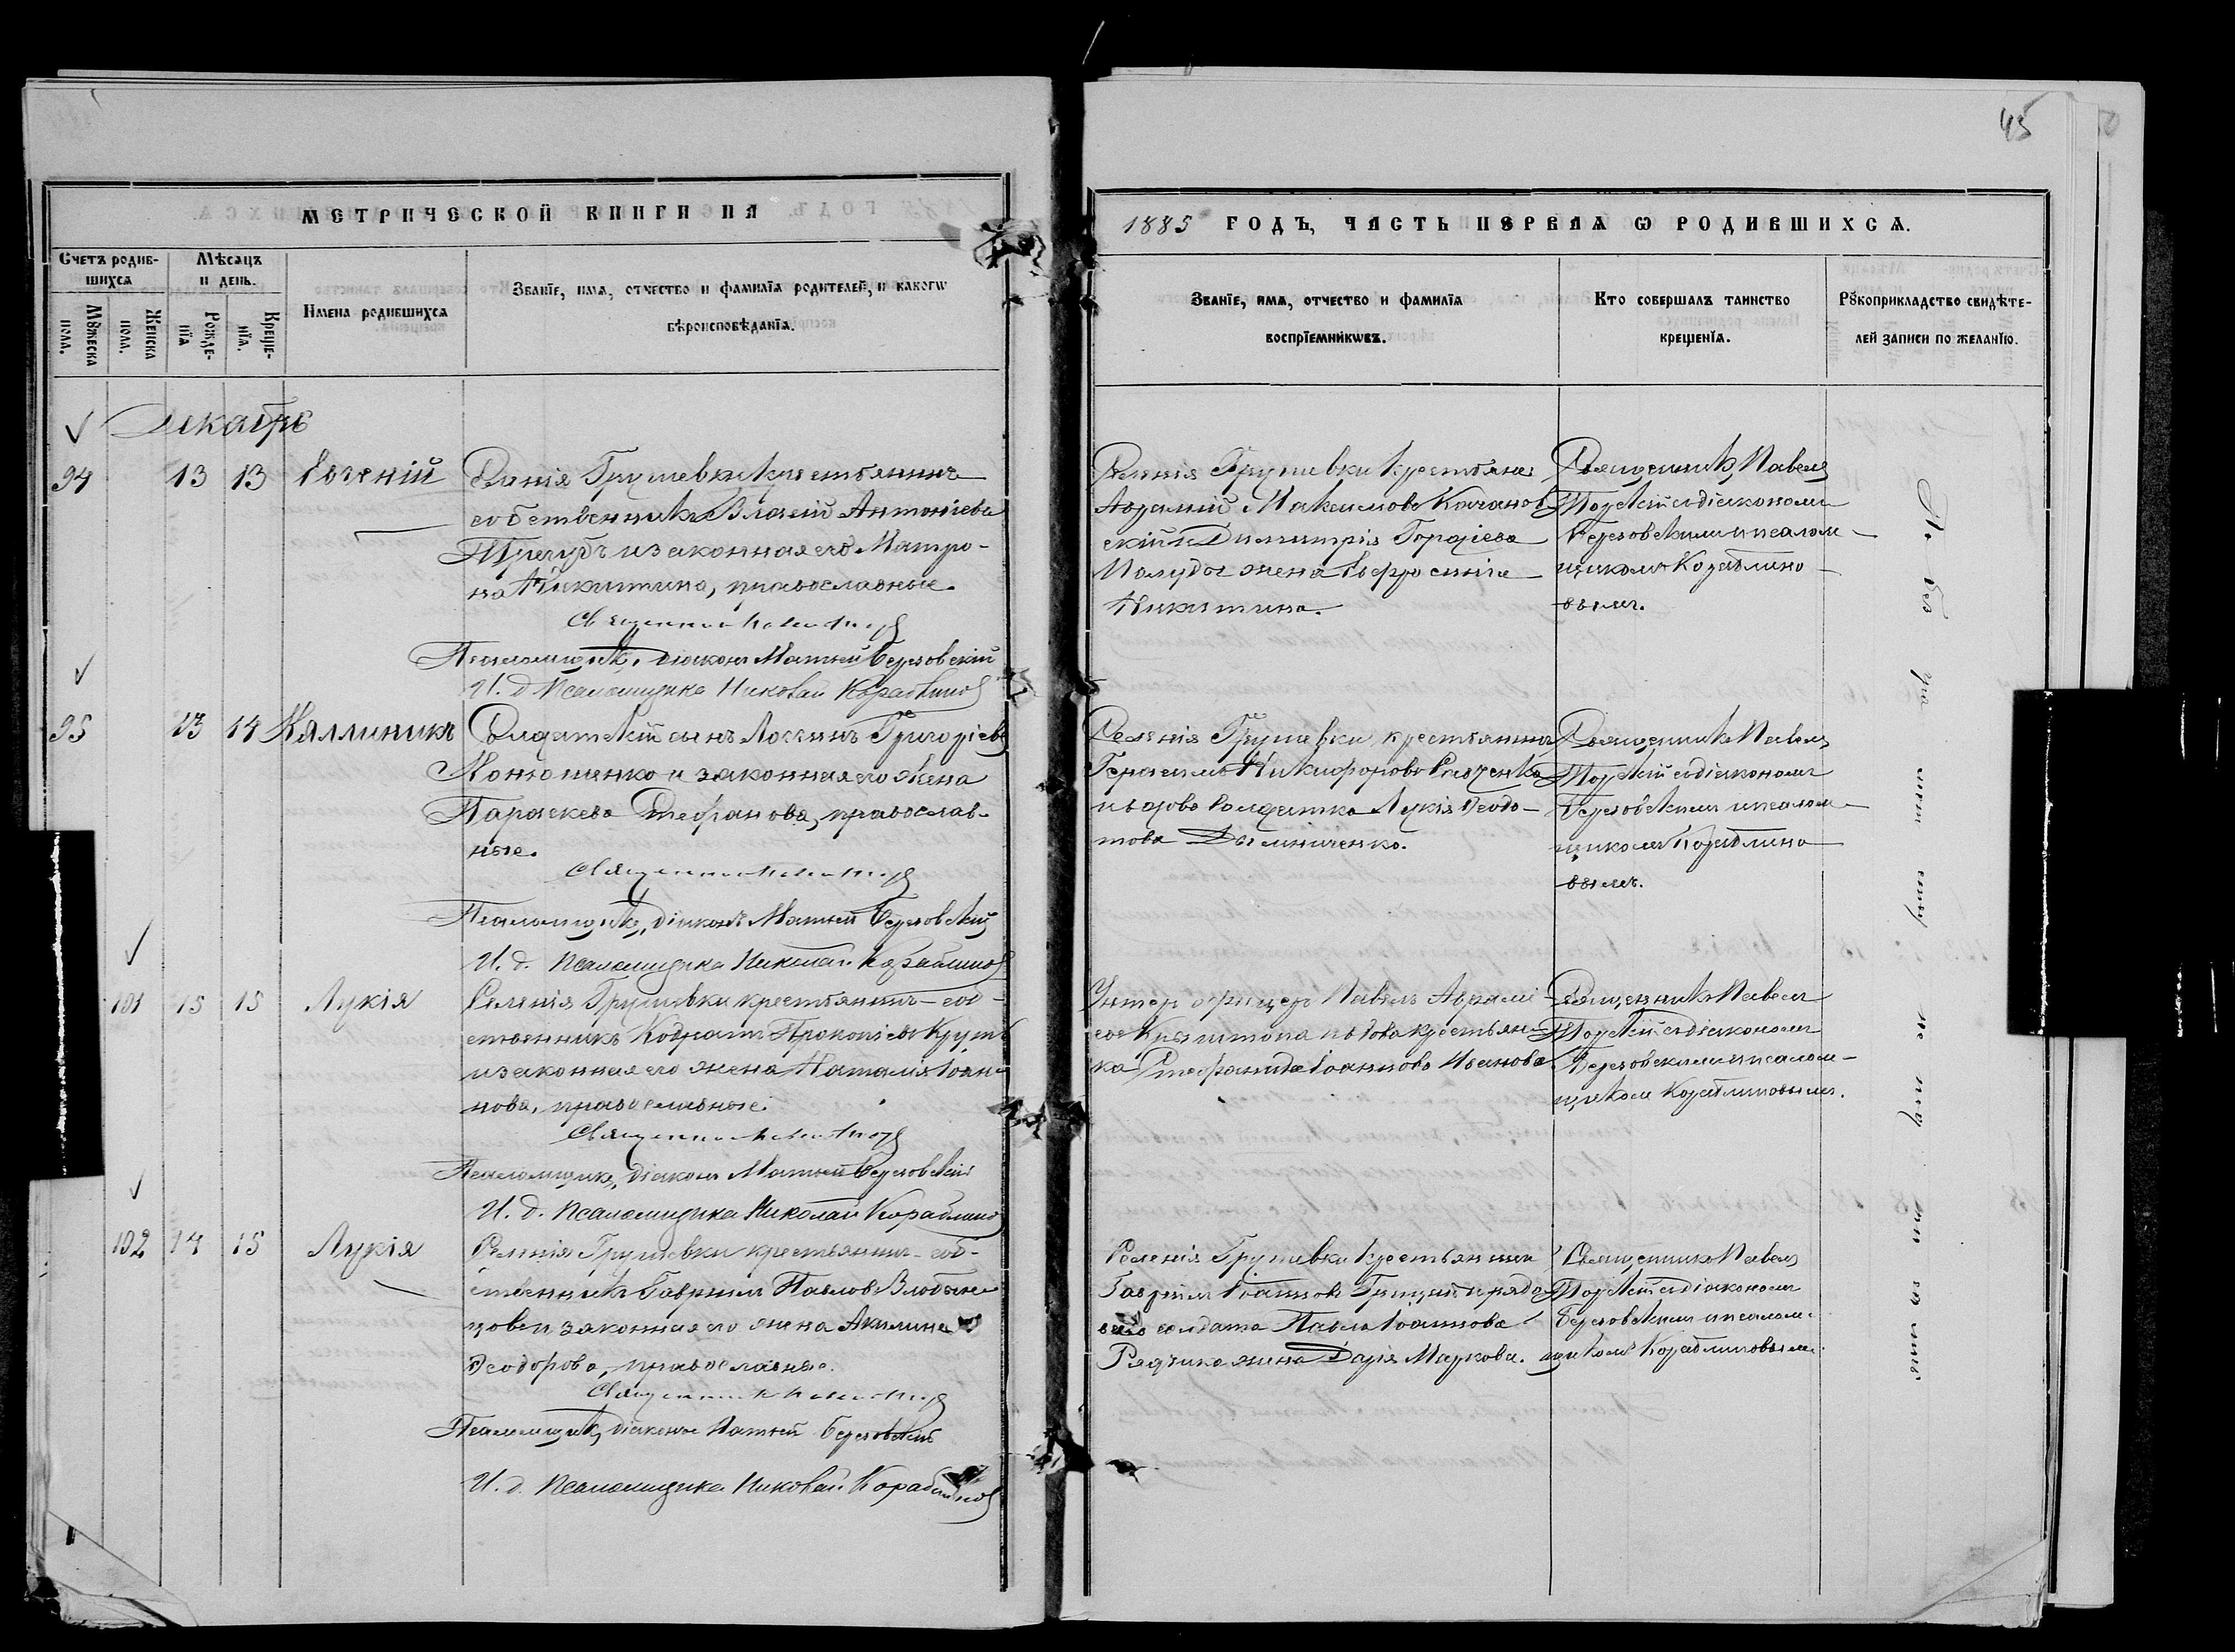 45
МЕТРИЧЕСКОЙ КНИГИ НА
1885 ГОДЪ, ЧАСТЬ ПЕРВАѦ Ѡ РОДИВШИХСѦ.
Счетъ родив-
шихсѧ
Мꙋжеска
пола.
Женска
пола.
Мѣсѧцъ
и день.
Рожде-
нїѧ
Креще-
нїѧ.
Имена родившихсѧ
Званїе, имѧ, отчество и фамилїѧ родителей, и какогѡ
вѣроисповѣданїѧ.
Званїе, имѧ, отчество и фамилїѧ
воспрїемникѡвъ.
Кто совершалъ таинство
крещенїѧ.
Рꙋкоприкладство свидѣте-
лей записи по желанїю.
Декабрь
94 13 13 Евгеній
Селенія Грушевки крестьянинъ
собственникъ Власій Антоніевъ
и законная его Матро-
на Никитина, православные.
Священникъ Павелъ
Псаломщикъ, діаконъ Матѳей Березовскій
И. д. Псаломщика Николай Кораблиновъ
Селенія Грушевки крестьяне
Максимовъ
скій и Димитрія Гордіева
жена Евфросинія
Никитина.
Священникъ Павелъ
съ діакономъ
Березовскимъ и псалом-
щикомъ Кораблино-
вымъ.
95 13 14 Каллиникъ
Солдатскій сынъ Логгинъ Григоріевъ
и законная его жена
Параскева Стефанова, православ-
ные.
Священникъ Павелъ
Псаломщикъ, діаконъ Матѳей Березовскій
И. д. Псаломщика Николай Кораблиновъ
Селенія Грушевки крестьянинъ
Герасимъ Никифоровъ Савченко
и вдова солдатка Лукія Ѳеодо-
това
Священникъ Павелъ
съ діакономъ
Березовскимъ и псалом-
щикомъ Кораблино-
вымъ.
101 15 15 Лукія
Селенія Грушевки крестьянинъ-соб-
ственникъ Кодратъ Прокопіевъ
и законная его жена Наталія Іоан-
нова, православные.
Священникъ Павелъ
Псаломщикъ, діаконъ Матѳей Березовскій
И. д. Псаломщика Николай Кораблиновъ
Унтеръ офицеръ Павелъ Аврамі-
евъ и вдова крестьян-
ка Стефанида Іоаннова Иванова
Священникъ Павелъ
съ діакономъ
Березовскимъ и псалом-
щикомъ Кораблиновымъ.
102 14 15 Лукія
Селенія Грушевки крестьянинъ-соб-
ственникъ Гавріилъ Павловъ
и законная его жена Акилина
Ѳеодорова, православные.
Священникъ Павелъ
Псаломщикъ, діаконъ Матѳей Березовскій
И. д. Псаломщика Николай Кораблиновъ
Селенія Грушевки крестьянинъ
Гавріилъ Іоанновъ и рядо-
ваго солдата Павла Іоаннова
жена Дарія Маркова.
Священникъ Павелъ
съ діакономъ
Березовскимъ и псалом-
щикомъ Кораблиновымъ.